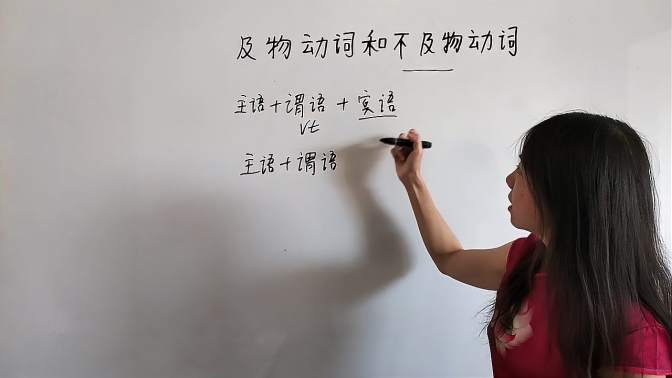 及物动词和不及物动词
主语+谓语+宾语
vt
主语+谓语